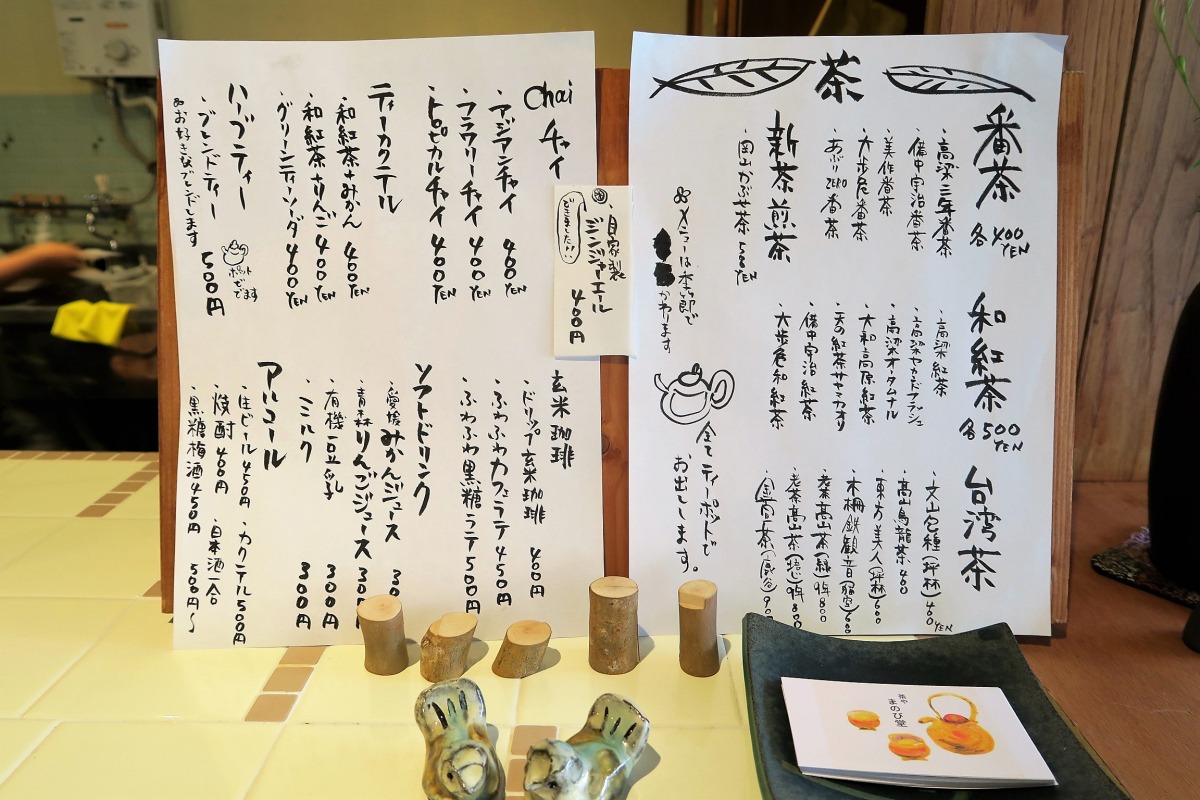 茶
番茶
各400YEN
・高梁三年番茶
・備中宇治番茶
・美作番茶
・大歩危番茶
・あぶりZERO番茶
新茶煎茶
・岡山かぶせ茶 500YEN
和紅茶
各500YEN
・高梁紅茶
・高梁セカンドフラッシュ
・高梁オータムナル
・大和高原紅茶
・天の紅茶
・備中宇治紅茶
・大歩危和紅茶
台湾茶
・文山包種(坪林) 400YEN
・高山烏龍茶 400
・東方美人(坪林) 600
・木柵鉄観音 600
・高山茶(緑) 800
・老茶高山茶 800
メニューは季節で
かわります
全てティーポットで
お出しします。
自家製
ジンジャーエール
400円
できました!!
Chai チャイ
・アジアンチャイ 400YEN
・フラワリーチャイ 400YEN
・トロピカルチャイ 400YEN
ティーカクテル
・和紅茶+みかん 400YEN
・和紅茶+りんご 400YEN
・グリーンティーソーダ 400YEN
ハーブティー
・ブレンドティー 500円
お好きなブレンドします
ポットででます
玄米珈琲
・ドリップ玄米珈琲 400円
・ふわふわカフェラテ 450円
・ふわふわ黒糖ラテ 500円
ソフトドリンク
・愛媛みかんジュース
・青森りんごジュース
・有機豆乳 300円
・ミルク 300円
アルコール
・生ビール 450円
・カクテル 500円
・焼酎 400円
・日本酒一合 500円~
・黒糖梅酒 450円
茶や
まのび堂